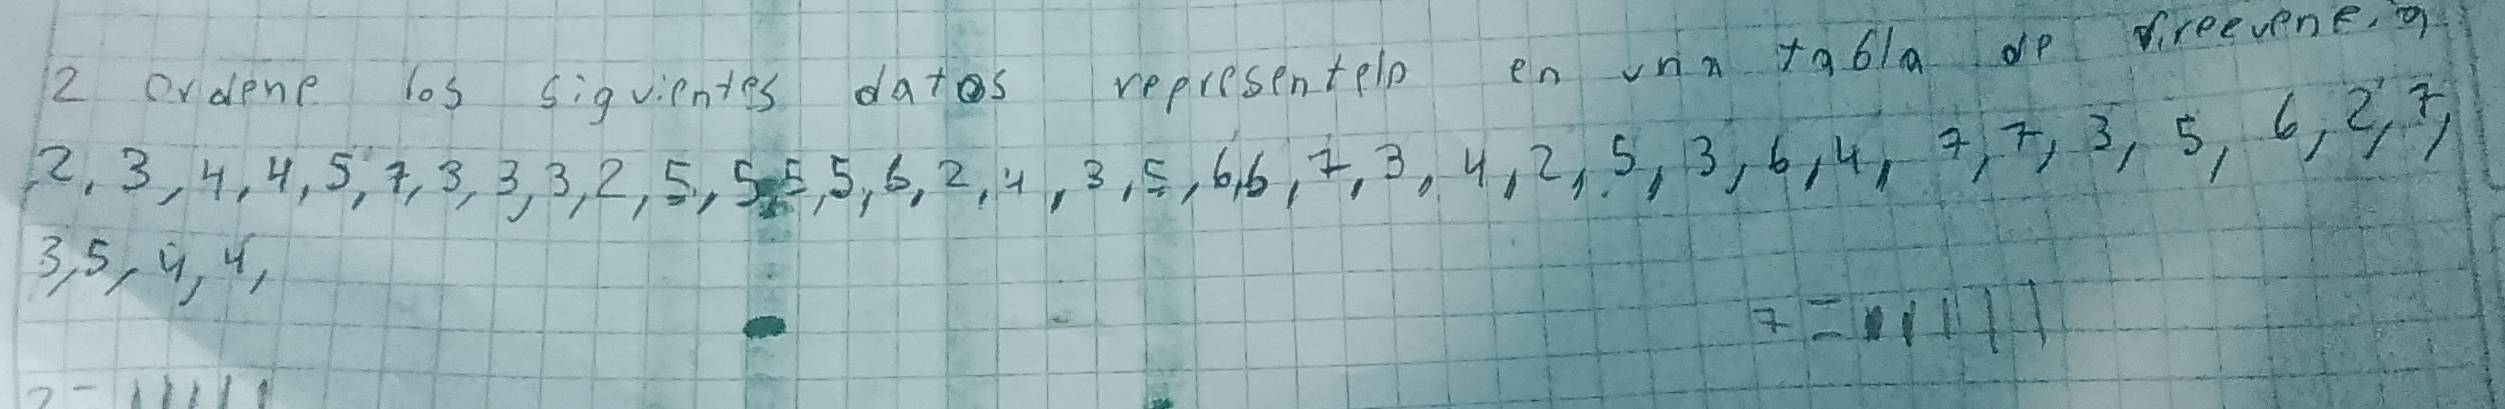 2 Ordene los siguientes datos representelo en una tabla de frecuencia
2, 3, 4, 4, 5, 7, 3, 3, 3, 2, 5, 5, 5, 5, 6, 2, 4, 3, 5, 6, 6, 7, 3, 4, 2, 5, 3, 6, 4, 7, 7, 3, 5, 6, 2, 7,
3, 5, 4, 4,
7 = | | | | | |
2 = | | | | |